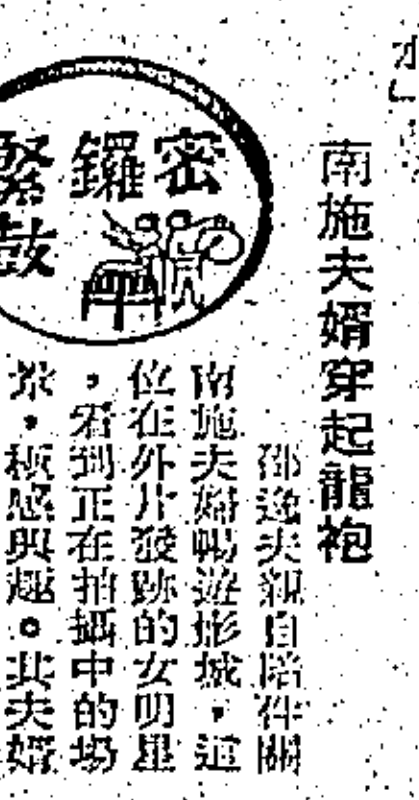 南施夫婿穿起龍袍
密鑼緊鼓
邵逸夫親自陪伴關
南施夫婦暢遊影城，這
位在外片發跡的女明星
，看到正在拍攝中的場
景，極感興趣。其夫婿